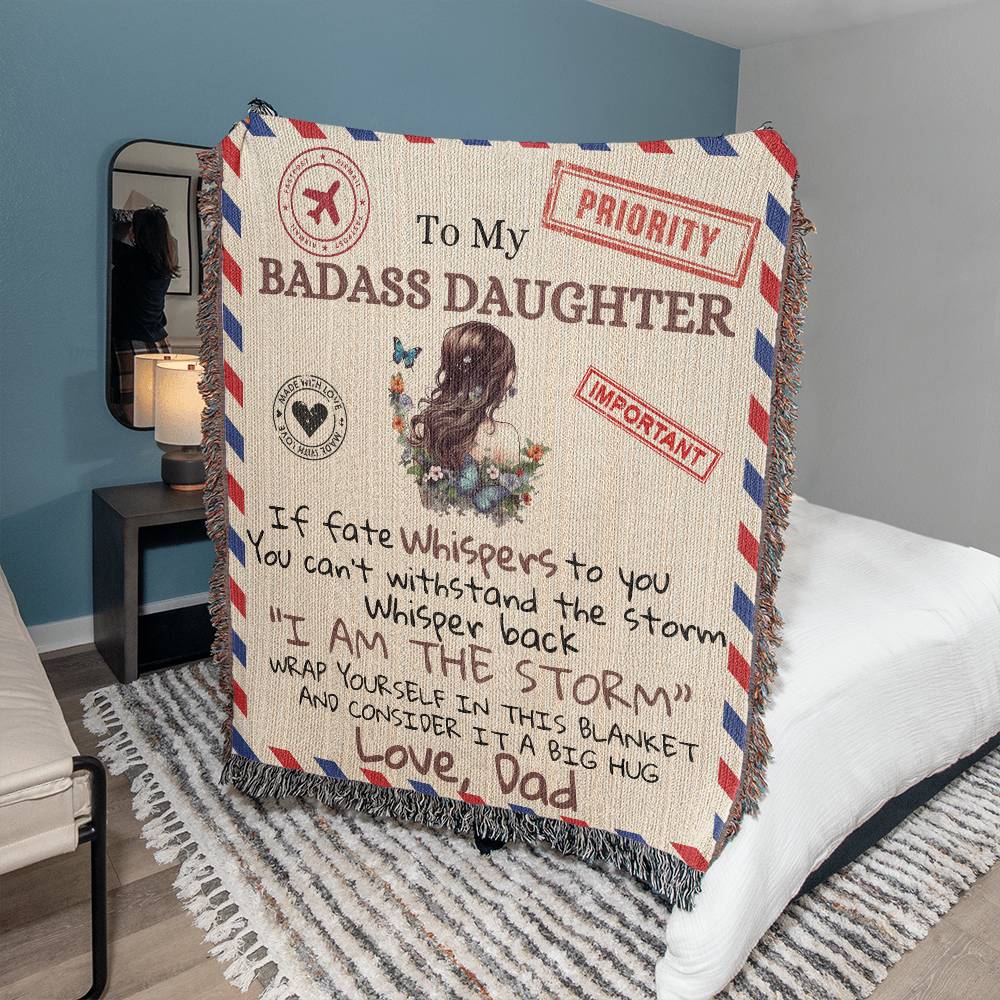 PRIORITY
To My
BADASS DAUGHTER
MADE WITH LOVE
MADE WITH LOVE
IMPORTANT
If fate Whispers to you
You can't withstand the storm
Whisper back
"I AM THE STORM"
WRAP YOURSELF IN THIS BLANKET
AND CONSIDER IT A BIG HUG
Love, Dad